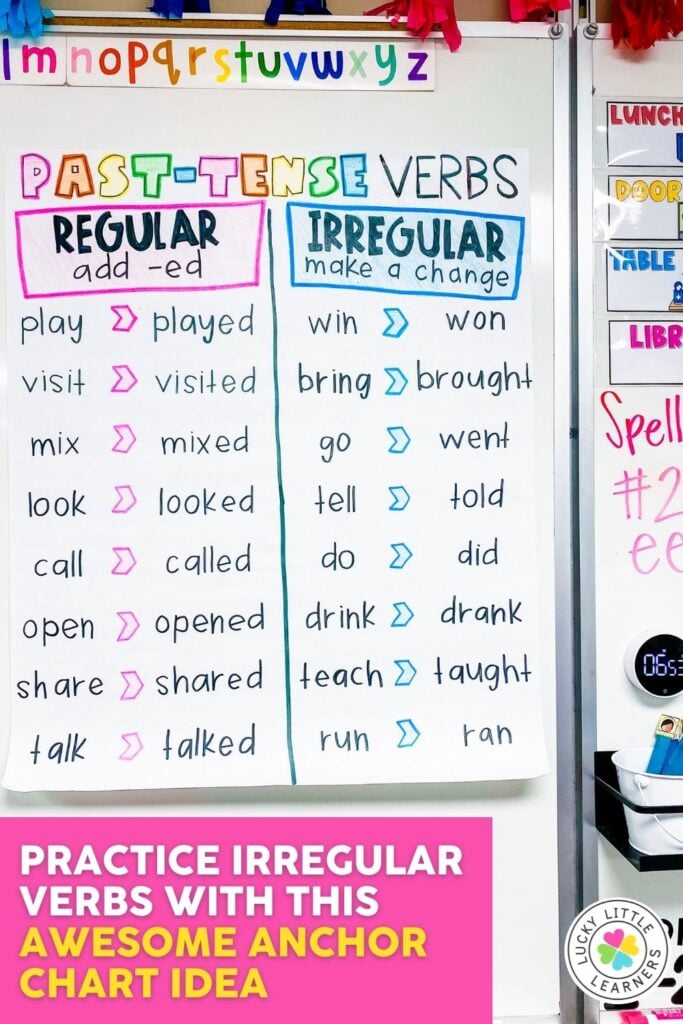 lm nopqrstuvwxyz
PAST-TENSE VERBS
REGULAR
add -ed
play played
visit visited
mix mixed
look looked
call called
open opened
share shared
talk talked
IRREGULAR
make a change
win won
bring brought
go went
tell told
do did
drink drank
teach taught
run ran
LUNCH
DOOR
TABLE
LIBR
Spell
#2
ee
PRACTICE IRREGULAR
VERBS WITH THIS
AWESOME ANCHOR
CHART IDEA
LUCKY LITTLE
LEARNERS